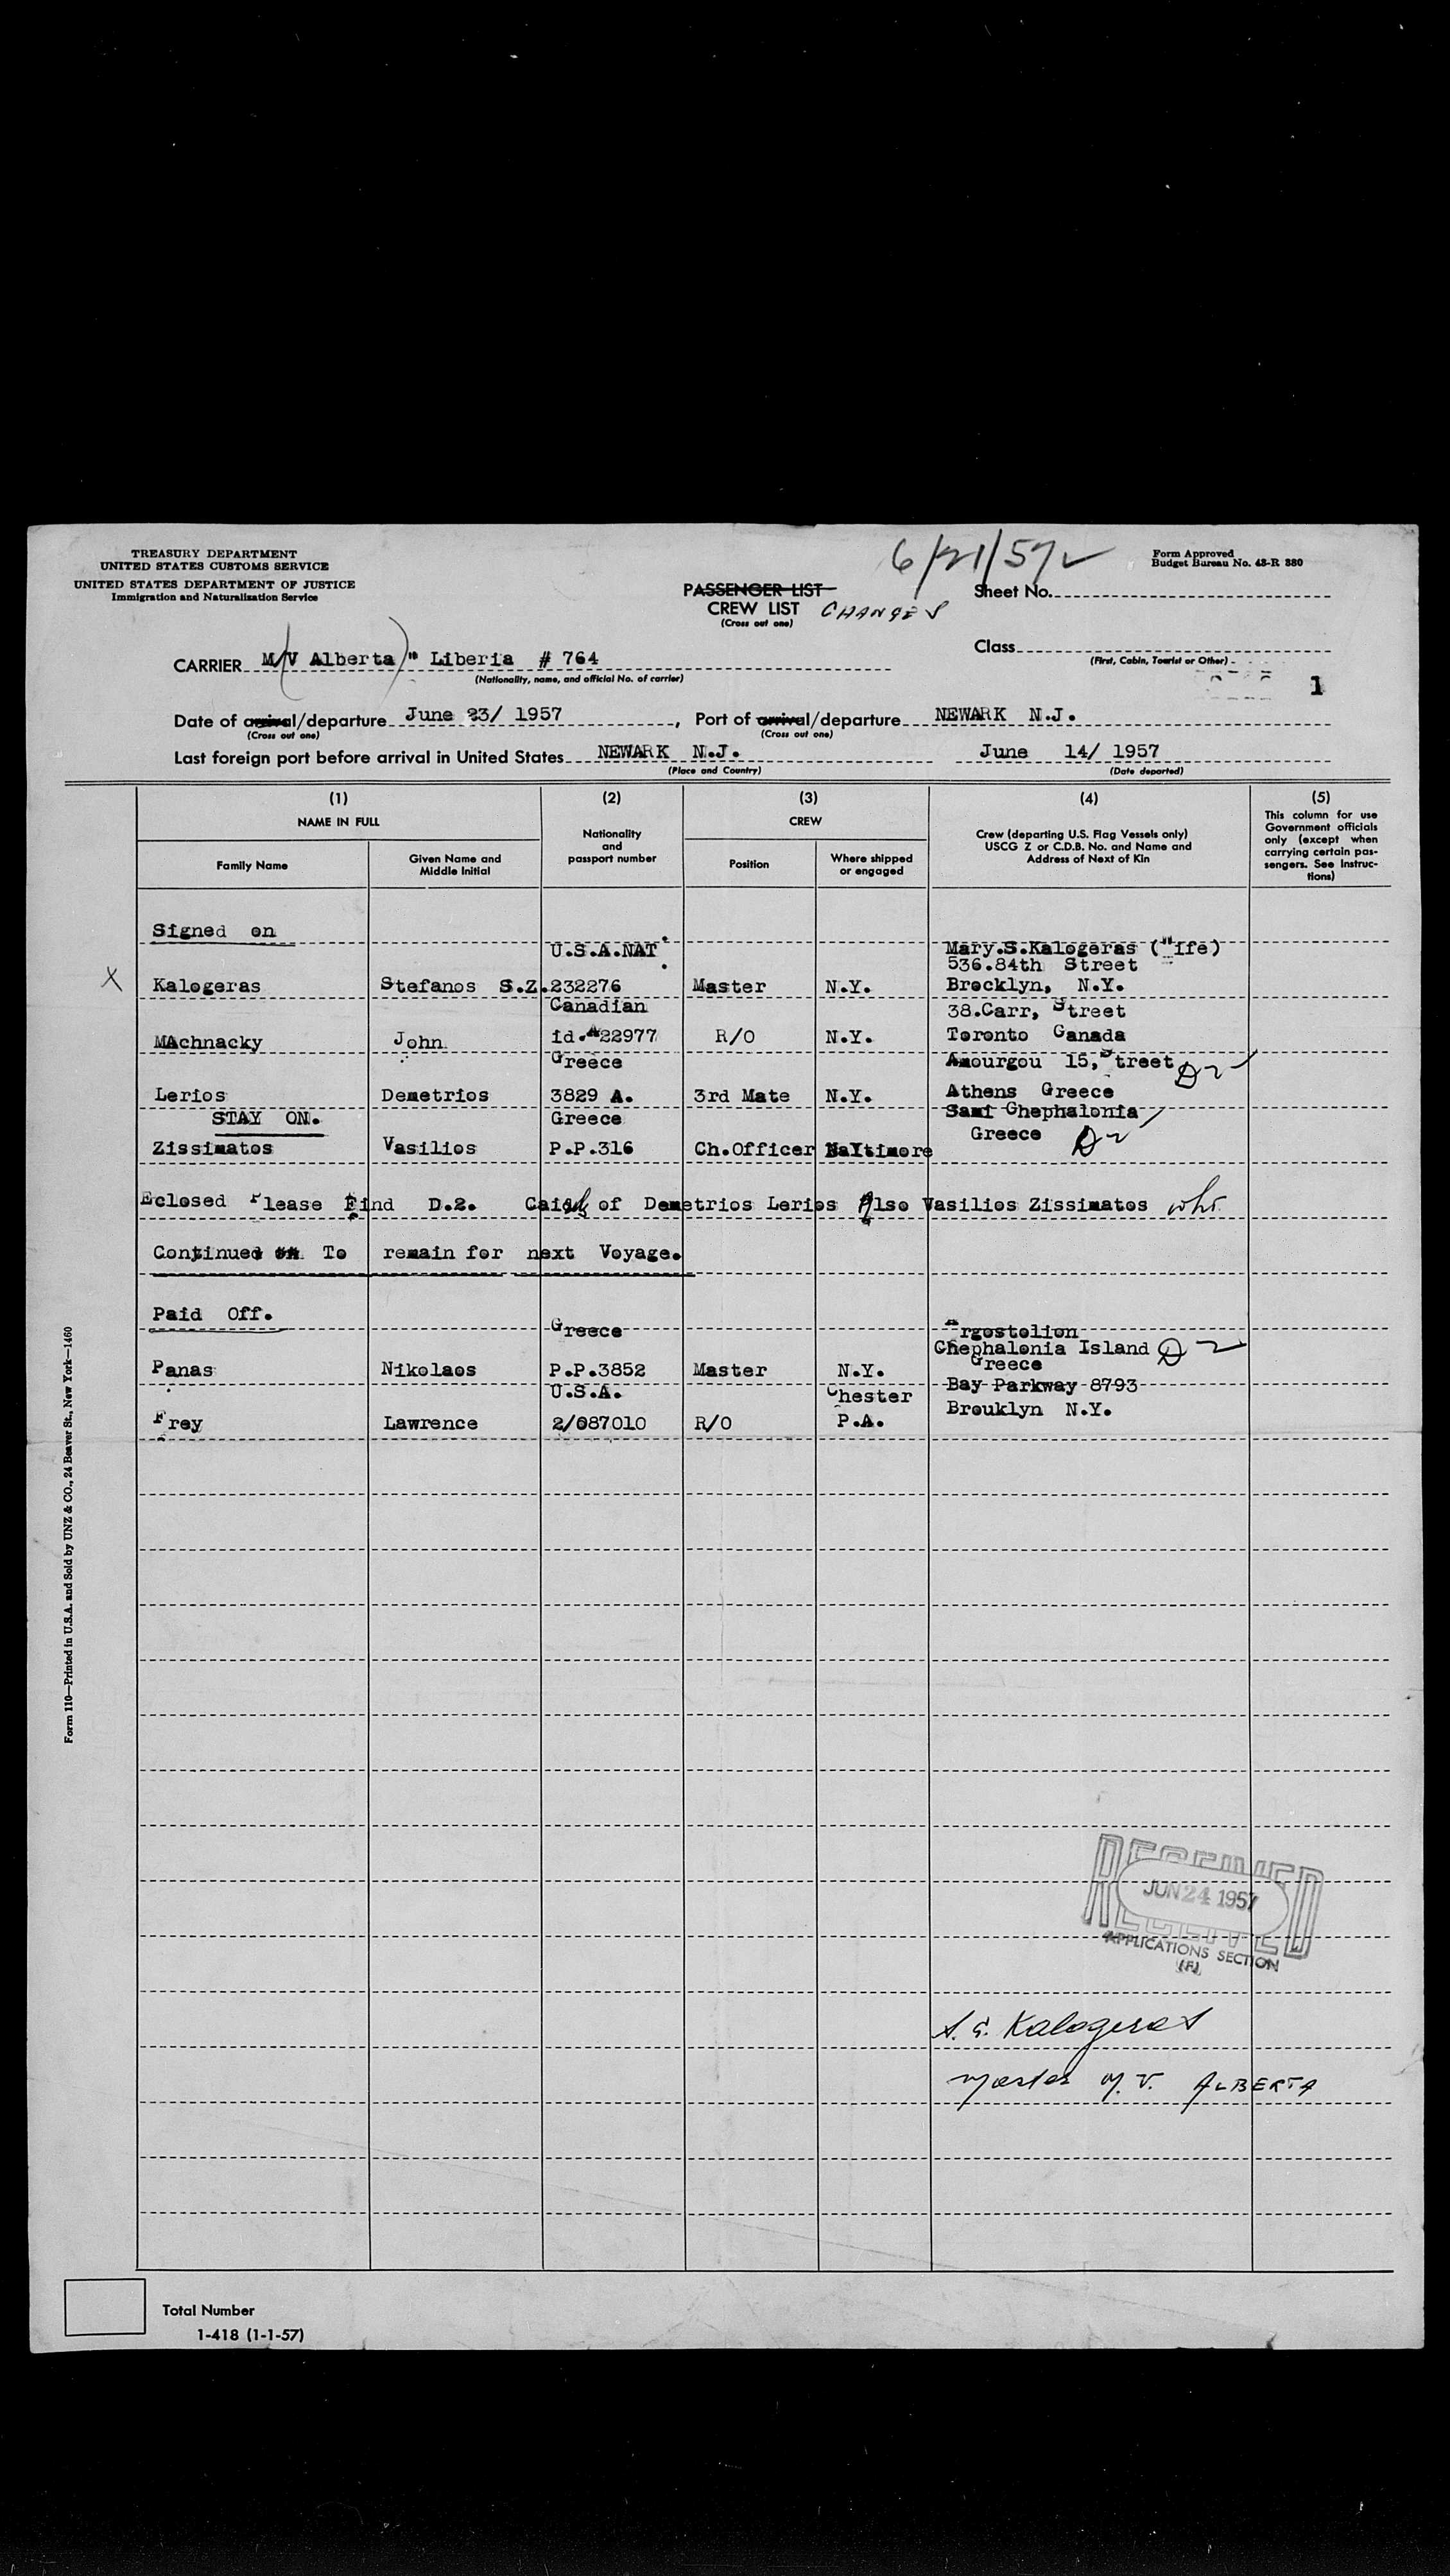 TREASURY DEPARTMENT
UNITED STATES CUSTOMS SERVICE
UNITED STATES DEPARTMENT OF JUSTICE
Immigration and Naturalization Service
6/21/57
Form Approved
Budget Bureau No. 43-R 380
PASSENGER LIST
CREW LIST CHANGES
(Cross out one)
Sheet No.
Class
(First, Cabin, Tourist or Other)
1
CARRIER M/V Alberta " Liberia # 764
(Nationality, name, and official No. of carrier)
Date of arrival/departure June 23/ 1957, Port of arrival/departure NEWARK N.J.
(Cross out one) (Cross out one)
Last foreign port before arrival in United States NEWARK N.J. June 14/ 1957
(Place and Country) (Date departed)
(1) (2) (3) (4) (5)
NAME IN FULL
Family Name
Given Name and
Middle Initial
Nationality
and
passport number
CREW
Position
Where shipped
or engaged
Crew (departing U.S. Flag Vessels only)
USCG Z or C.D.B. No. and Name and
Address of Next of Kin
This column for use
Government officials
only (except when
carrying certain pas-
sengers. See Instruc-
tions)
Signed on
U.S.A.NAT. Mary.S.Kalogeras (Wife)
536.84th Street
X Kalogeras Stefanos S.Z. 232276 Master N.Y. Brocklyn, N.Y.
Canadian 38.Carr, Street
MAchnacky John id.#22977 R/O N.Y. Toronto Canada
Greece Amourgou 15, Street D2
Lerios Demetrios 3829 A. 3rd Mate N.Y. Athens Greece
STAY ON. Greece Sami Chephalonia
Zissimatos Vasilios P.P.316 Ch.Officer Baltimore Greece D2
Eclosed Please Find D.2. of Demetrios Lerios Also Vasilios Zissimatos who
Continued To remain for next Voyage.
Paid Off.
Greece Argostolion
Chephalonia Island D2
Panas Nikolaos P.P.3852 Master N.Y. Greece
U.S.A. Chester Bay Parkway 8793
Frey Lawrence 2/087010 R/O P.A. Brouklyn N.Y.
RECEIVED
JUN 24 1957
RECEIVED
APPLICATIONS SECTION
S. G. Kalogeras
Master M.V. ALBERTA
Total Number
1-418 (1-1-57)
Form 110—Printed in U.S.A. and Sold by UNZ & CO., 24 Beaver St., New York—1460